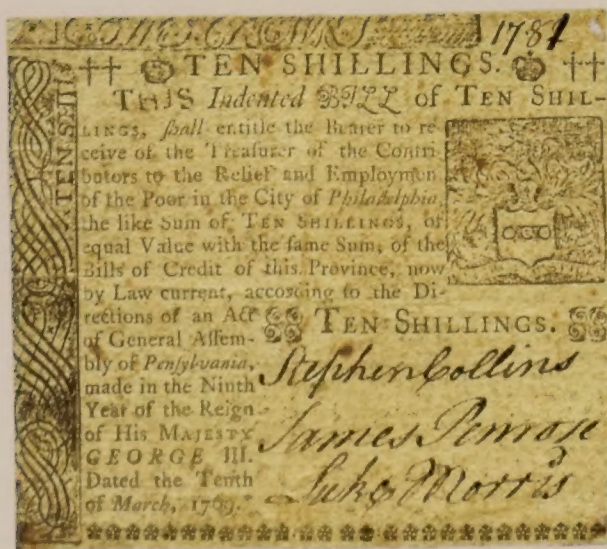 1781
TEN SHILLINGS.
THIS Indented BILL of TEN SHIL-
LINGS, ſhall entitle the Bearer to re-
ceive of the Treaſurer of the Contri-
butors to the Relief and Employmen
of the Poor in the City of Philadelphia,
the like Sum of TEN SHILLINGS, or
equal Value with the ſame Sum, of the
Bills of Credit of this Province, now
by Law current, according to the Di-
rections of an Act
of General Aſſem-
bly of Penſylvania,
made in the Ninth
Year of the Reign
of His MAJESTY
GEORGE III.
Dated the Tenth
of March, 1769.
TEN SHILLINGS.
Stephen Collins
James Penrose
Luke Morris
TEN SHIL